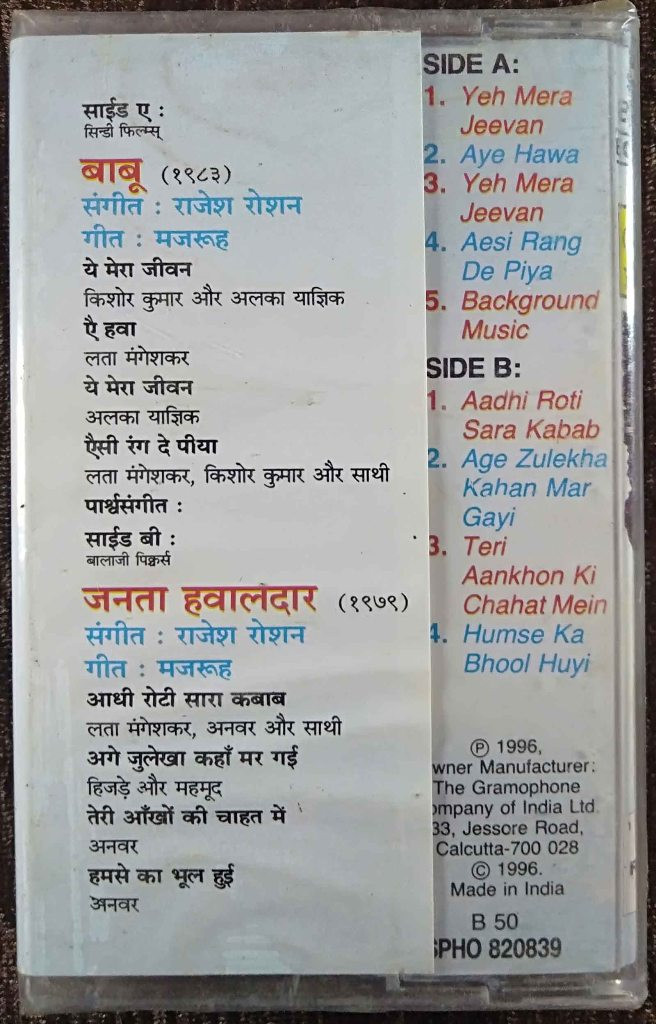 साईड ए :
सिन्डी फिल्म्स्
बाबू (१९८३)
संगीत : राजेश रोशन
गीत : मजरूह
ये मेरा जीवन
किशोर कुमार और अलका याज्ञिक
ऐ हवा
लता मंगेशकर
ये मेरा जीवन
अलका याज्ञिक
ऐसी रंग दे पीया
लता मंगेशकर, किशोर कुमार और साथी
पार्श्वसंगीत :
साईड बी :
बालाजी पिक्चर्स
जनता हवालदार (१९७९)
संगीत : राजेश रोशन
गीत : मजरूह
आधी रोटी सारा कबाब
लता मंगेशकर, अनवर और साथी
अगे जुलेखा कहाँ मर गई
हिजड़े और महमूद
तेरी आँखों की चाहत में
अनवर
हमसे का भूल हुई
अनवर
SIDE A:
1. Yeh Mera
Jeevan
2. Aye Hawa
3. Yeh Mera
Jeevan
4. Aesi Rang
De Piya
5. Background
Music
SIDE B:
1. Aadhi Roti
Sara Kabab
2. Age Zulekha
Kahan Mar
Gayi
3. Teri
Aankhon Ki
Chahat Mein
4. Humse Ka
Bhool Huyi
Ⓟ 1996,
wner Manufacturer:
The Gramophone
ompany of India Ltd
33, Jessore Road,
Calcutta-700 028
© 1996.
Made in India
B 50
SPHO 820839